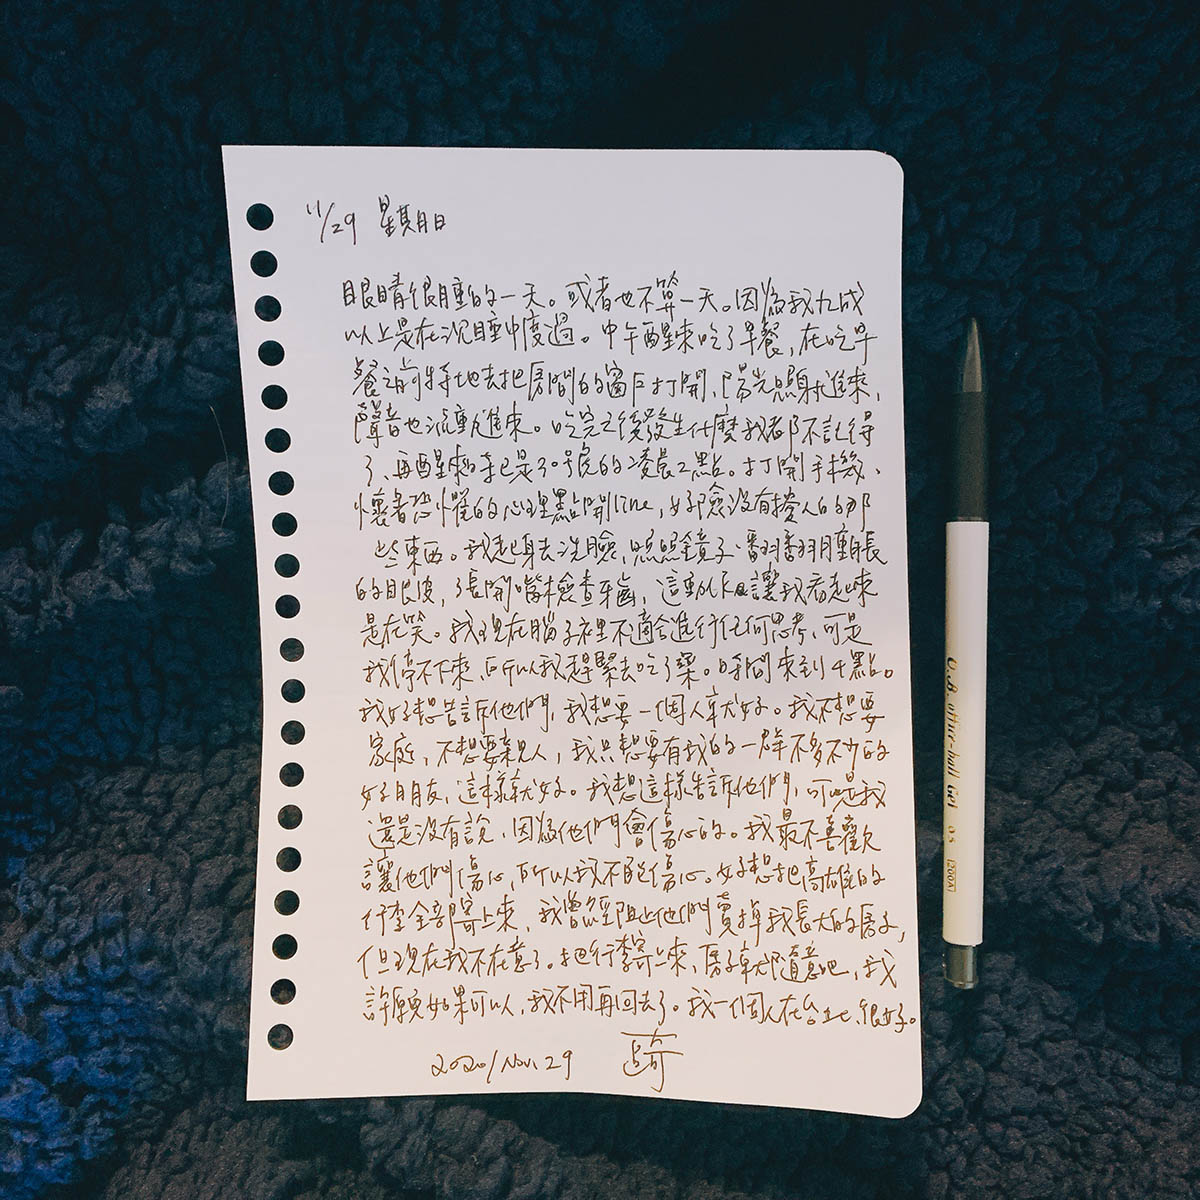 11/29 星期日
眼睛很腫的一天。或者也不算一天。因為我九成
以上是在沉睡中度過。中午醒來吃了早餐,在吃早
餐之前特地去把房間的窗戶打開,陽光照射進來,
聲音也流動進來。吃完之後發生什麼我都不記得
了、再醒來時已是30號的凌晨2點。打開手機、
懷著恐懼的心裡點開line,好險沒有擾人的那
些東西。我起身去洗臉,照照鏡子、翻翻腫脹
的眼皮,張開嘴檢查牙齒,這動作讓我看起來
是在笑。我現在腦子裡不適合進行任何思考、可是
我停不下來,所以我趕緊去吃了藥。時間來到4點。
我好想告訴他們,我想要一個人就好。我不想要
家庭,不想要親人,我只想要有我的一群不多不少的
好朋友,這樣就好。我想這樣告訴他們,可是我
還是沒有說,因為他們會傷心的。我最不喜歡
讓他們傷心,所以我不能傷心。好想把高雄的
行李全部寄上來,我曾經阻止他們賣掉我長大的房子,
但現在我不在意了。把行李寄上來,房子就隨意吧,我
許願如果可以,我不用再回去了。我一個人在台北,很好。
2020/Nov. 29
O.B. office-ball Gel 0.5 [200A]